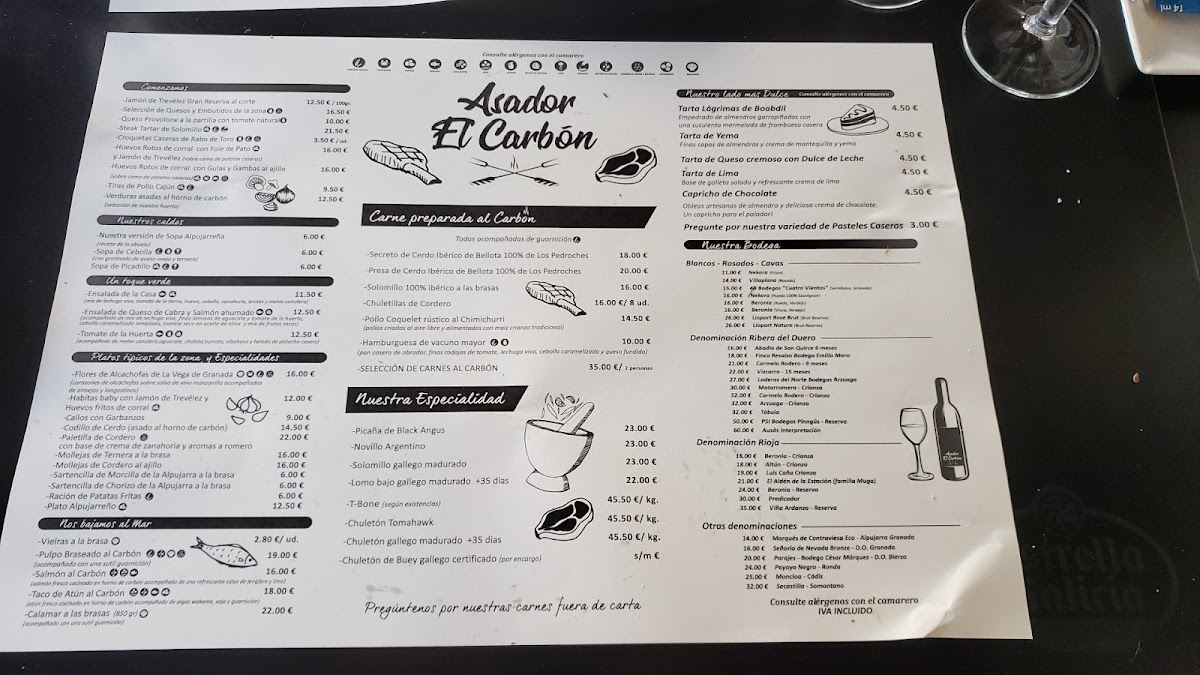 Consulte alérgenos con el camarero
Asador
El Carbón
Comenzamos
-Jamón de Trevélez Gran Reserva al corte 12.50 € / 100gr.
-Selección de Quesos y Embutidos de la zona 16.50 €
-Queso Provolone a la parrilla con tomate natural 10.00 €
-Steak Tartar de Solomillo 21.50 €
-Croquetas Caseras de Rabo de Toro 3.50 €/ ud.
-Huevos Rotos de corral con Foie de Pato 16.00 €
y Jamón de Trevélez (sobre cama de patatas caseras)
-Huevos Rotos de corral con Gulas y Gambas al ajillo 16.00 €
(sobre cama de patatas caseras)
-Tiras de Pollo Cajún 9.50 €
-Verduras asadas al horno de carbón 12.50 €
(selección de nuestra huerta)
Nuestros caldos
-Nuestra versión de Sopa Alpujarreña 6.00 €
(receta de la abuela)
-Sopa de Cebolla 6.00 €
(con gratinado de queso oveja y ternera)
Sopa de Picadillo 6.00 €
Un toque verde
-Ensalada de la Casa 11.50 €
(mix de lechuga viva, tomate de la tierra, huevo, cebolla, zanahoria, brotes y melva canutera)
-Ensalada de Queso de Cabra y Salmón ahumado 12.50 €
(acompañado de mix de lechuga viva, finas láminas de aguacate y tomate de la huerta,
cebolla caramelizada templada, tomate seco en aceite de oliva y mix de frutos secos)
-Tomate de la Huerta 12.50 €
(acompañado de melva canutera, aguacate, chalota, burrata, albahaca y helado de pistacho casero)
Platos típicos de la zona y Especialidades
-Flores de Alcachofas de La Vega de Granada 16.00 €
(corazones de alcachofas sobre salsa de vino manzanilla acompañadas
de almejas y langostinos)
-Habitas baby con Jamón de Trevélez y 12.00 €
Huevos fritos de corral
-Callos con Garbanzos 9.00 €
-Codillo de Cerdo (asado al horno de carbón) 14.50 €
-Paletilla de Cordero 22.00 €
con base de crema de zanahoria y aromas a romero
-Mollejas de Ternera a la brasa 16.00 €
-Mollejas de Cordero al ajillo 16.00 €
-Sartencilla de Morcilla de la Alpujarra a la brasa 6.00 €
-Sartencilla de Chorizo de la Alpujarra a la brasa 6.00 €
-Ración de Patatas Fritas 6.00 €
-Plato Alpujarreño 12.50 €
Nos bajamos al Mar
-Vieiras a la brasa 2.80 €/ ud.
-Pulpo Braseado al Carbón 19.00 €
(acompañado con una sutil guarnición)
-Salmón al Carbón 16.00 €
(salmón fresco cocinado en horno de carbón acompañado de una refrescante salsa de jengibre y lima)
-Taco de Atún al Carbón 18.00 €
(atún fresco cocinado en horno de carbón acompañado de algas wakame, soja y guarnición)
-Calamar a las brasas (850 gr) 22.00 €
(acompañado con una sutil guarnición)
Carne preparada al Carbón
Todas acompañadas de guarnición
-Secreto de Cerdo Ibérico de Bellota 100% de Los Pedroches 18.00 €
-Presa de Cerdo Ibérico de Bellota 100% de Los Pedroches 20.00 €
-Solomillo 100% ibérico a las brasas 16.00 €
-Chuletillas de Cordero 16.00 €/ 8 ud.
-Pollo Coquelet rústico al Chimichurri 14.50 €
(pollos criados al aire libre y alimentados con maíz crianza tradicional)
-Hamburguesa de vacuno mayor 10.00 €
(pan casero de obrador, finas rodajas de tomate, lechuga viva, cebolla caramelizada y queso fundido)
-SELECCIÓN DE CARNES AL CARBÓN 35.00 €/ 2 personas
Nuestra Especialidad
-Picaña de Black Angus 23.00 €
-Novillo Argentino 23.00 €
-Solomillo gallego madurado 23.00 €
-Lomo bajo gallego madurado +35 días 22.00 €
-T-Bone (según existencias) 45.50 €/ kg.
-Chuletón Tomahawk 45.50 €/ kg.
-Chuletón gallego madurado +35 días 45.50 €/ kg.
-Chuletón de Buey gallego certificado (por encargo) s/m €
Pregúntenos por nuestras carnes fuera de carta
Nuestro lado más Dulce Consulte alérgenos con el camarero
Tarta Lágrimas de Boabdil 4.50 €
Empedrado de almendras garrapiñadas con
una suculenta mermelada de frambuesa casera
Tarta de Yema 4.50 €
Finas capas de almendras y crema de mantequilla y yema
Tarta de Queso cremoso con Dulce de Leche 4.50 €
Tarta de Lima 4.50 €
Base de galleta salada y refrescante crema de lima
Capricho de Chocolate 4.50 €
Obleas artesanas de almendra y deliciosa crema de chocolate.
Un capricho para el paladar!
Pregunte por nuestra variedad de Pasteles Caseros 3.00 €
Nuestra Bodega
Blancos - Rosados - Cavas
11.00 € Nekora
14.00 € Villaplana (Rosado)
15.00 € Bodegas "Cuatro Vientos" (Semidulce, Granada)
16.00 € Nekora (Rueda 100% Sauvignon)
16.00 € Beronia (Rueda, Verdejo)
16.00 € Beronia (Viura, Verdejo)
26.00 € Llopart Rose Brut (Brut Reserva)
26.00 € Llopart Nature (Brut Reserva)
Denominación Ribera del Duero
16.00 € Abadía de San Quirce 6 meses
18.00 € Finca Resalso Bodega Emilio Moro
21.00 € Carmelo Rodero - 9 meses
22.00 € Vizcarra - 15 meses
27.00 € Loderos del Norte Bodegas Arzuaga
30.00 € Matarromera - Crianza
32.00 € Carmelo Rodero - Crianza
32.00 € Arzuaga - Crianza
32.00 € Tábula
50.00 € PSI Bodegas Pinngûs - Reserva
60.00 € Ausás Interpretación
Denominación Rioja
16.00 € Beronia - Crianza
18.00 € Altún - Crianza
19.00 € Luis Caña Crianza
21.00 € El Aldén de la Estación (familia Muga)
24.00 € Beronia - Reserva
30.00 € Predicador
35.00 € Viña Ardanza - Reserva
Asador
El Carbón
Otras denominaciones
14.00 € Marqués de Contraviesa Eco - Alpujarra Granada
16.00 € Señorío de Nevada Bronze - D.O. Granada
20.00 € Parajes - Bodega César Márquez - D.O. Bierzo
24.00 € Payoya Negra - Ronda
25.00 € Moncloa - Cádiz
32.00 € Secastilla - Somontano
Consulte alérgenos con el camarero
IVA INCLUIDO
14 ml